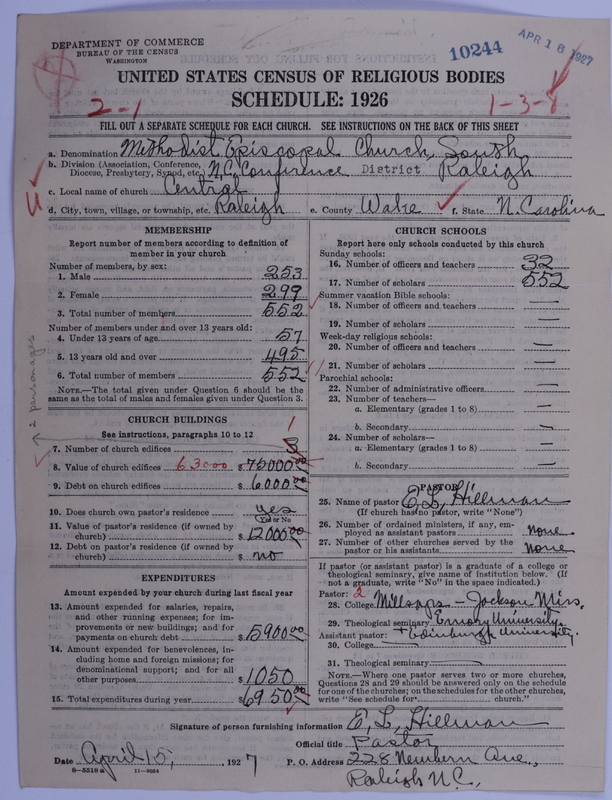 DEPARTMENT OF COMMERCE
BUREAU OF THE CENSUS
WASHINGTON
10244
APR 18 1927
UNITED STATES CENSUS OF RELIGIOUS BODIES
SCHEDULE: 1926
2-1
1-3-8
FILL OUT A SEPARATE SCHEDULE FOR EACH CHURCH. SEE INSTRUCTIONS ON THE BACK OF THIS SHEET
a. Denomination Methodist Episcopal Church, South
b. Division (Association, Conference, Diocese, Presbytery, Synod, etc.) N.C. Conference District Raleigh
c. Local name of church Central
d. City, town, village, or township, etc. Raleigh e. County Wake f. State N. Carolina
MEMBERSHIP
Report number of members according to definition of
member in your church
Number of members, by sex:
1. Male 253
2. Female 299
3. Total number of members 552
Number of members under and over 13 years old:
4. Under 13 years of age 57
5. 13 years old and over 495
6. Total number of members 552
NOTE.—The total given under Question 6 should be the
same as the total of males and females given under Question 3.
2 parsonages
CHURCH BUILDINGS
See instructions, paragraphs 10 to 12
1
7. Number of church edifices 3
8. Value of church edifices 63000 $75000.00
9. Debt on church edifices $6000.00
10. Does church own pastor's residence yes
(Yes or No)
11. Value of pastor's residence (if owned by
church) $12000.00
12. Debt on pastor's residence (if owned by
church) $ no
EXPENDITURES
Amount expended by your church during last fiscal year
13. Amount expended for salaries, repairs,
and other running expenses; for im-
provements or new buildings; and for
payments on church debt $5900.00
14. Amount expended for benevolences, in-
cluding home and foreign missions; for
denominational support; and for all
other purposes $1050
15. Total expenditures during year $6950.00
CHURCH SCHOOLS
Report here only schools conducted by this church
Sunday schools:
16. Number of officers and teachers 32
17. Number of scholars 552
Summer vacation Bible schools:
18. Number of officers and teachers —
19. Number of scholars —
Week-day religious schools:
20. Number of officers and teachers —
21. Number of scholars —
Parochial schools:
22. Number of administrative officers —
23. Number of teachers—
a. Elementary (grades 1 to 8) —
b. Secondary —
24. Number of scholars—
a. Elementary (grades 1 to 8) —
b. Secondary —
PASTOR
25. Name of pastor E. L. Hillman
(If church has no pastor, write "None")
26. Number of ordained ministers, if any, em-
ployed as assistant pastors None
27. Number of other churches served by the
pastor or his assistants None
If pastor (or assistant pastor) is a graduate of a college or
theological seminary, give name of institution below. (If
not a graduate, write "No" in the space indicated.)
Pastor: 2
28. College Millsaps - Jackson Miss.
29. Theological seminary Emory University.
Assistant pastor: + Edinburgh University.
30. College —
31. Theological seminary —
NOTE.—Where one pastor serves two or more churches,
Questions 28 and 29 should be answered only on the schedule
for one of the churches; on the schedules for the other churches,
write "See schedule for church."
Signature of person furnishing information E. L. Hillman
Official title Pastor
Date April 15, 1927 P. O. Address 228 Newbern Ave.,
8-5518 a 11-9054 Raleigh N.C.,